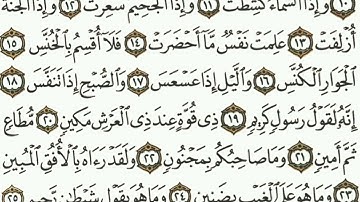 ١٠ وَإِذَا ٱلسَّمَآءُ كُشِطَتْ ١١ وَإِذَا ٱلْجَحِيمُ سُعِّرَتْ ١٢ وَإِذَا ٱلْجَنَّةُ
أُزْلِفَتْ ١٣ عَلِمَتْ نَفْسٌ مَّآ أَحْضَرَتْ ١٤ فَلَآ أُقْسِمُ بِٱلْخُنَّسِ ١٥
ٱلْجَوَارِ ٱلْكُنَّسِ ١٦ وَٱلَّيْلِ إِذَا عَسْعَسَ ١٧ وَٱلصُّبْحِ إِذَا تَنَفَّسَ ١٨
إِنَّهُۥ لَقَوْلُ رَسُولٍ كَرِيمٍ ١٩ ذِى قُوَّةٍ عِندَ ذِى ٱلْعَرْشِ مَكِينٍ ٢٠ مُّطَاعٍ
ثَمَّ أَمِينٍ ٢١ وَمَا صَاحِبُكُم بِمَجْنُونٍ ٢٢ وَلَقَدْ رَءَاهُ بِٱلْأُفُقِ ٱلْمُبِينِ
٢٣ وَمَا هُوَ عَلَى ٱلْغَيْبِ بِضَنِينٍ ٢٤ وَمَا هُوَ بِقَوْلِ شَيْطَٰنٍ رَّجِيمٍ ٢٥